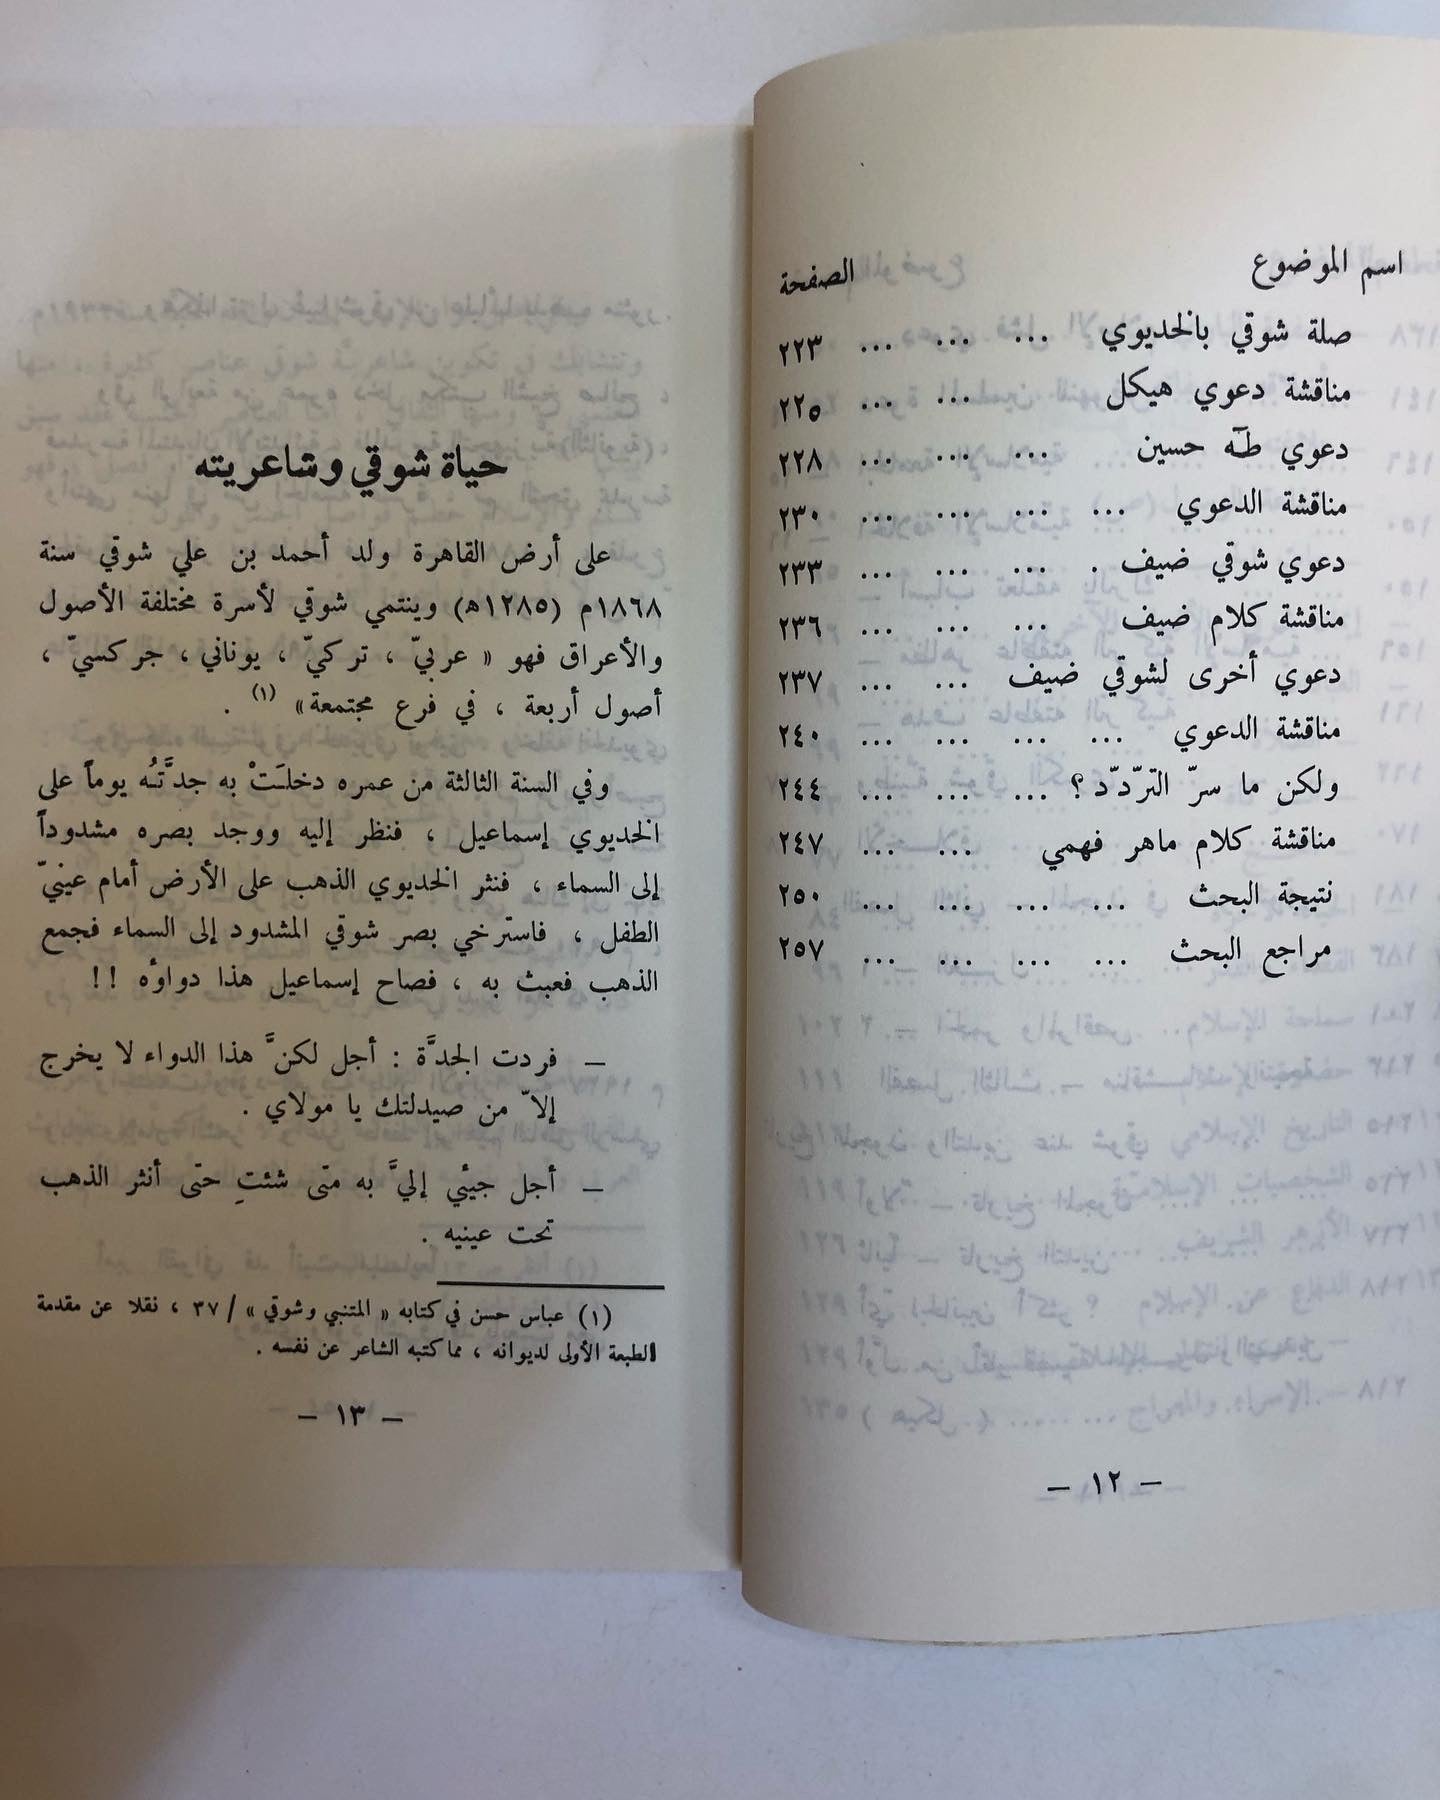 اسم الموضوع الصفحة
صلة شوقي بالخديوي ... ... ... ٢٢٣
مناقشة دعوي هيكل ... ... ٢٢٥
دعوي طه حسين ... ... ... ٢٢٨
مناقشة الدعوي ... ... ... ... ٢٣٠
دعوي شوقي ضيف . ... ... ... ٢٣٣
مناقشة كلام ضيف ... ... ... ٢٣٦
دعوي أخرى لشوقي ضيف ... ... ٢٣٧
مناقشة الدعوي ... ... ... ... ٢٤٠
ولكن ما سرّ التردّد ؟ ... ... ... ٢٤٤
مناقشة كلام ماهر فهمي ... ... ٢٤٧
نتيجة البحث ... ... ... ... ٢٥٠
مراجع البحث ... ... ... ... ٢٥٧
– ١٢ –
حياة شوقي وشاعريته
على أرض القاهرة ولد أحمد بن علي شوقي سنة
١٨٦٨م (١٢٨٥ه) وينتمي شوقي لأسرة مختلفة الأصول
والأعراق فهو « عربيّ ، تركيّ ، يوناني ، جركسيّ ،
أصول أربعة ، في فرع مجتمعة» (١) .
وفي السنة الثالثة من عمره دخلَتْ به جدَّتُه يوماً على
الخديوي إسماعيل ، فنظر إليه ووجد بصره مشدوداً
إلى السماء ، فنثر الخديوي الذهب على الأرض أمام عينيّ
الطفل ، فاسترخي بصر شوقي المشدود إلى السماء فجمع
الذهب فعبث به ، فصاح إسماعيل هذا دواؤه !!
– فردت الجدَّة : أجل لكنَّ هذا الدواء لا يخرج
إلاّ من صيدلتك يا مولاي .
– أجل جيئي إليَّ به متى شئتِ حتى أنثر الذهب
تحت عينيه .
(١) عباس حسن في كتابه « المتنبي وشوقي » / ٣٧ ، نقلا عن مقدمة
الطبعة الأولى لديوانه ، مما كتبه الشاعر عن نفسه .
– ١٣ –